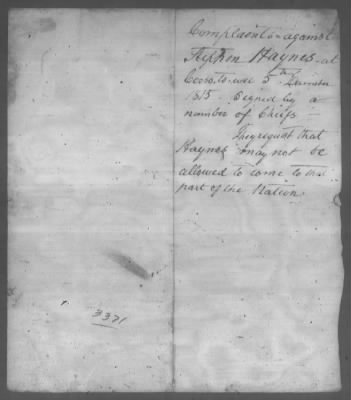 Complaint against
Stephen Haynes at
5th December
1815 Signed by a
number of Chiefs
They request that
Haynes may not be
allowed to come to that
part of the Nation
3371